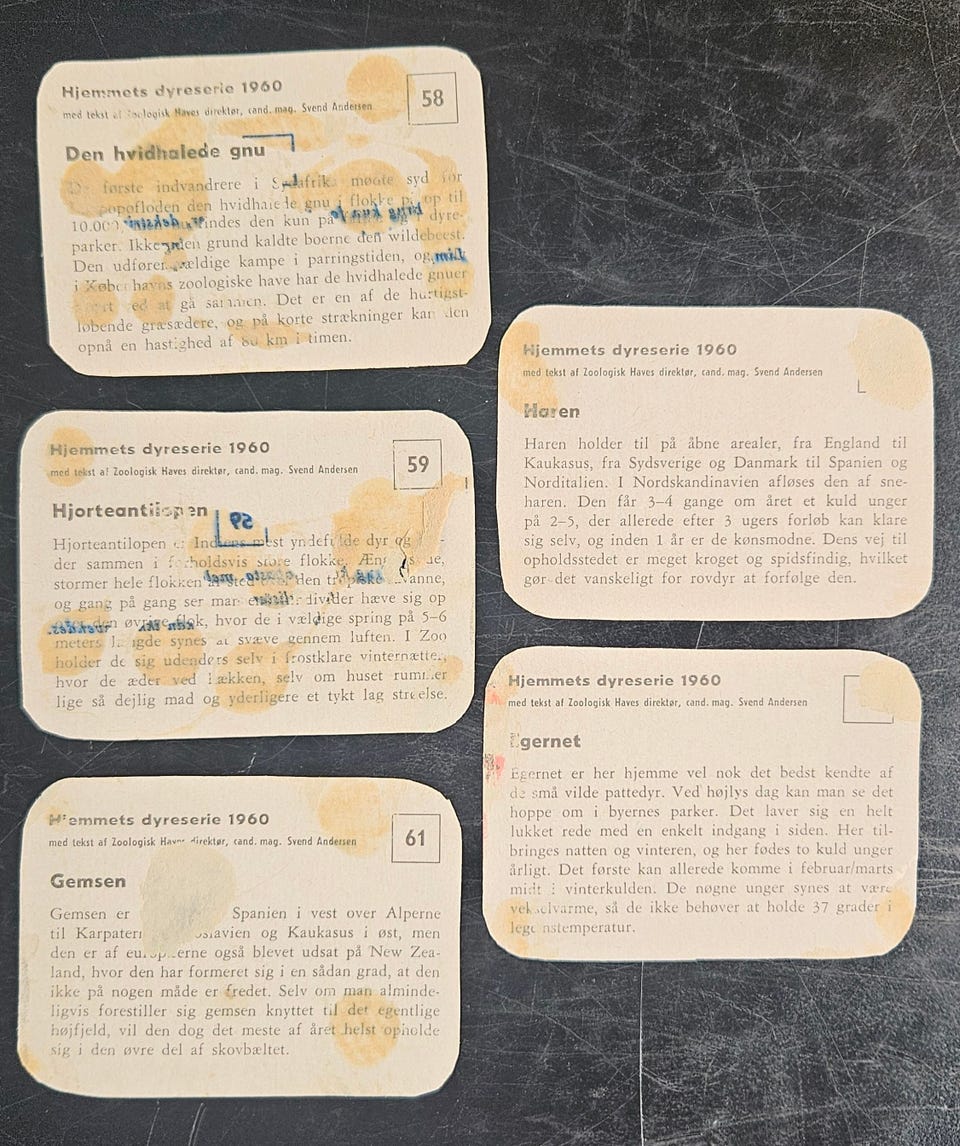 Hjemmets dyreserie 1960
58
med tekst af Zoologisk Haves direktør, cand. mag. Svend Andersen
Den hvidhalede gnu
første indvandrere i mødte syd for
den hvidhalede gnu i flokke på op til
10.000, findes den kun på dyre-
parker. Ikke uden grund kaldte boerne den wildebeest.
Den udfører vældige kampe i parringstiden, og
i Københavns zoologiske have har de hvidhalede gnuer
ved at gå sammen. Det er en af de hurtigst-
løbende græsædere, og på korte strækninger kan den
opnå en hastighed af 80 km i timen.
Hjemmets dyreserie 1960
59
med tekst af Zoologisk Haves direktør, cand. mag. Svend Andersen
Hjorteantilopen
59
Hjorteantilopen er Indiens mest yndefulde dyr og
der sammen i forholdsvis store flokke.
stormer hele flokken
og gang på gang ser man hæve sig op
den øvrige flok, hvor de i vældige spring på 5-6
meters længde synes at svæve gennem luften. I Zoo
holder de sig udendørs selv i frostklare vinternætter,
hvor de æder ved hækken, selv om huset rummer
lige så dejlig mad og yderligere et tykt lag strøelse.
Hjemmets dyreserie 1960
61
med tekst af Zoologisk Haves direktør, cand. mag. Svend Andersen
Gemsen
Gemsen er Spanien i vest over Alperne
til Karpaterne og Kaukasus i øst, men
den er af europæerne også blevet udsat på New Zea-
land, hvor den har formeret sig i en sådan grad, at den
ikke på nogen måde er fredet. Selv om man alminde-
ligvis forestiller sig gemsen knyttet til det egentlige
højfjeld, vil den dog det meste af året helst opholde
sig i den øvre del af skovbæltet.
Hjemmets dyreserie 1960
med tekst af Zoologisk Haves direktør, cand. mag. Svend Andersen
Haren
Haren holder til på åbne arealer, fra England til
Kaukasus, fra Sydsverige og Danmark til Spanien og
Norditalien. I Nordskandinavien afløses den af sne-
haren. Den får 3-4 gange om året et kuld unger
på 2-5, der allerede efter 3 ugers forløb kan klare
sig selv, og inden 1 år er de kønsmodne. Dens vej til
opholdsstedet er meget kroget og spidsfindig, hvilket
gør det vanskeligt for rovdyr at forfølge den.
Hjemmets dyreserie 1960
med tekst af Zoologisk Haves direktør, cand. mag. Svend Andersen
Egernet
Egernet er her hjemme vel nok det bedst kendte af
de små vilde pattedyr. Ved højlys dag kan man se det
hoppe om i byernes parker. Det laver sig en helt
lukket rede med en enkelt indgang i siden. Her til-
bringes natten og vinteren, og her fødes to kuld unger
årligt. Det første kan allerede komme i februar/marts
midt i vinterkulden. De nøgne unger synes at være
vekselvarme, så de ikke behøver at holde 37 grader i
legemstemperatur.